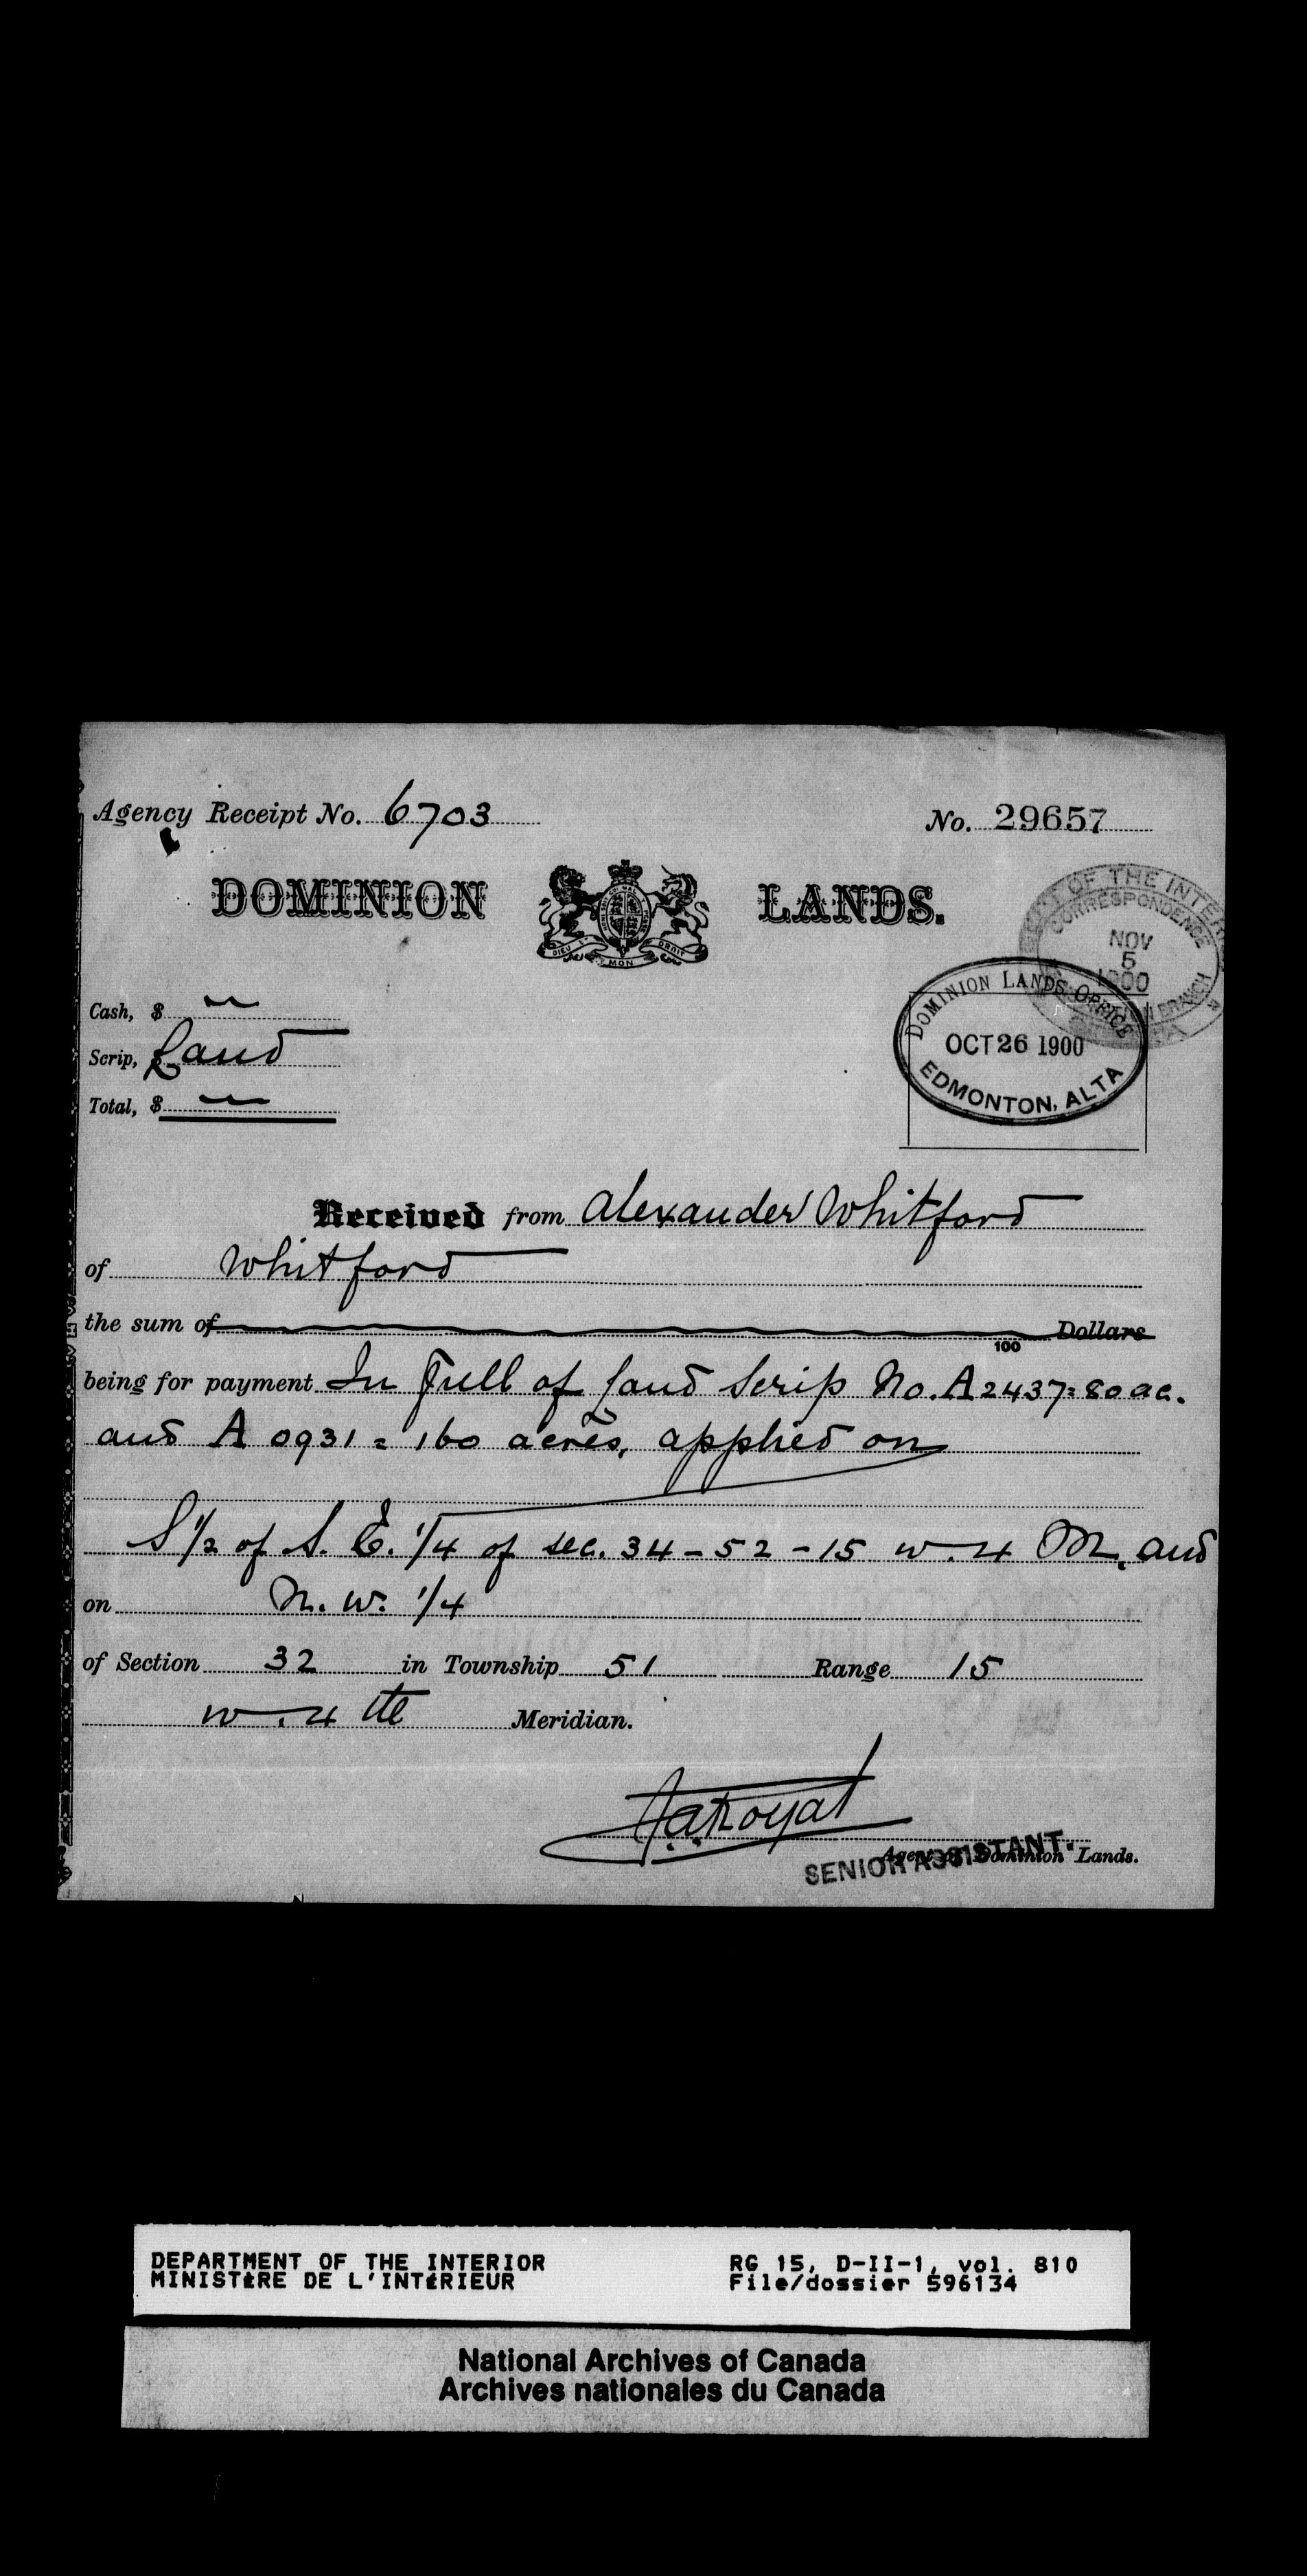 Agency Receipt No. 6703
No. 29657
DOMINION LANDS.
DIEU ET MON DROIT
OF THE INTER
CORRESPONDENCE
NOV
5
1900
BRANCH
DOMINION LANDS OFFICE
OCT 26 1900
EDMONTON, ALTA
Cash, $
Scrip, Land
Total, $
Received from Alexander Whitford
of Whitford
the sum of Dollars
100
being for payment In full of land Scrip No. A 2437 = 80 ac.
and A 0931 = 160 acres, applied on
S 1/2 of S. E. 1/4 of sec. 34 - 52 - 15 w. 4 M. and
on N. W. 1/4
of Section 32 in Township 51 Range 15
w. 4 th Meridian.
Royal
Agent of Dominion Lands.
SENIOR ASSISTANT.
DEPARTMENT OF THE INTERIOR
MINISTÈRE DE L'INTÉRIEUR
RG 15, D-II-1, vol. 810
File/dossier 596134
National Archives of Canada
Archives nationales du Canada